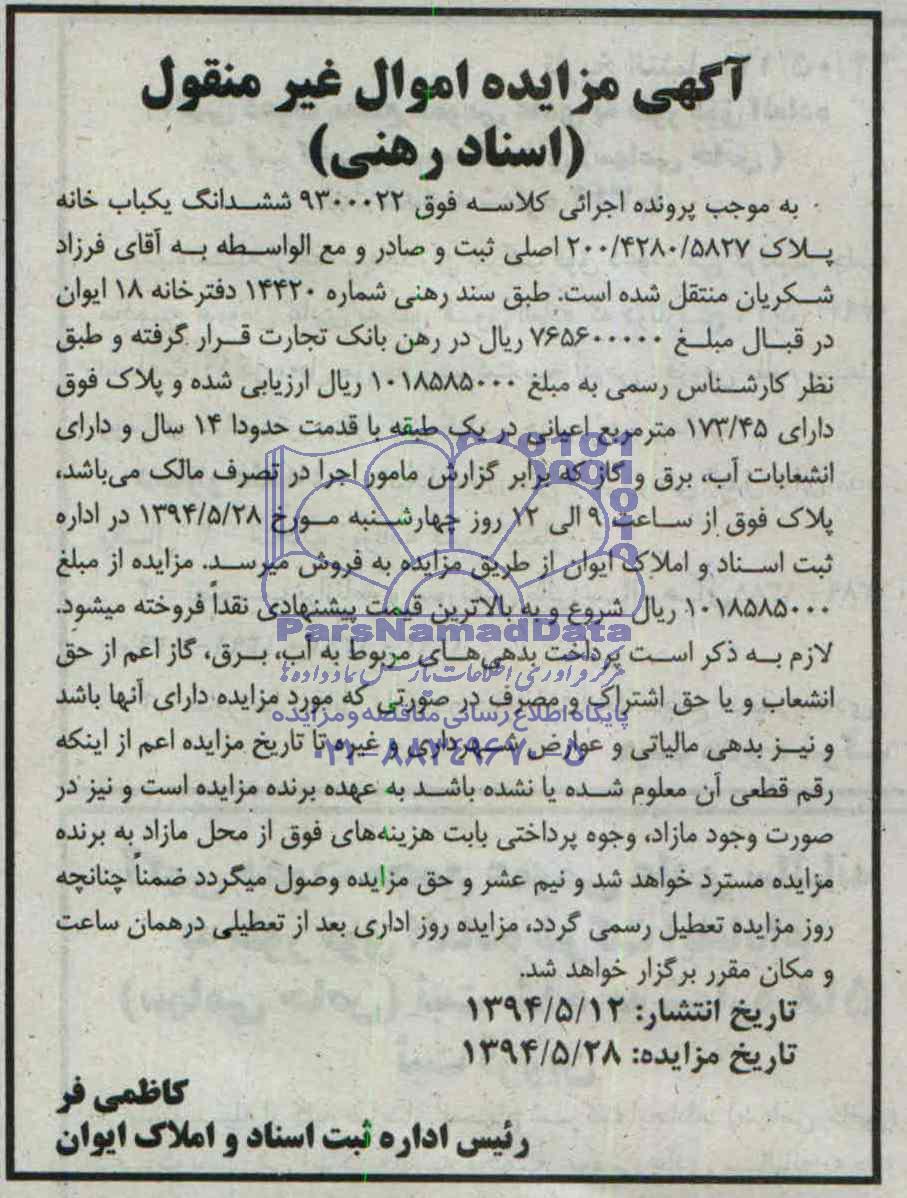 آگهی مزایده اموال غیر منقول
(اسناد رهنی)
به موجب پرونده اجرائی کلاسه فوق ۹۳۰۰۰۲۲ ششدانگ یکباب خانه
پلاک ۲۰۰/۴۲۸۰/۵۸۲۷ اصلی ثبت و صادر و مع الواسطه به آقای فرزاد
شکریان منتقل شده است. طبق سند رهنی شماره ۱۴۴۲۰ دفترخانه ۱۸ ایوان
در قبال مبلغ ۷۶۵۶۰۰۰۰۰ ریال در رهن بانک تجارت قرار گرفته و طبق
نظر کارشناس رسمی به مبلغ ۱۰۱۸۵۸۵۰۰۰ ریال ارزیابی شده و پلاک فوق
دارای ۱۷۳/۴۵ مترمربع اعیانی در یک طبقه با قدمت حدودا ۱۴ سال و دارای
انشعابات آب، برق و گاز که برابر گزارش مامور اجرا در تصرف مالک می‌باشد،
پلاک فوق از ساعت ۹ الی ۱۲ روز چهارشنبه مورخ ۱۳۹۴/۵/۲۸ در اداره
ثبت اسناد و املاک ایوان از طریق مزایده به فروش میرسد. مزایده از مبلغ
۱۰۱۸۵۸۵۰۰۰ ریال شروع و به بالاترین قیمت پیشنهادی نقداً فروخته میشود.
ParsNamadData
لازم به ذکر است پرداخت بدهی‌های مربوط به آب، برق، گاز اعم از حق
مرکز فرآوری اطلاعات پارس نماد داده‌ها
انشعاب و یا حق اشتراک و مصرف در صورتی که مورد مزایده دارای آنها باشد
پایگاه اطلاع رسانی مناقصه و مزایده
و نیز بدهی مالیاتی و عوارض شهرداری و غیره تا تاریخ مزایده اعم از اینکه
۰۲۱-۸۸۳۴۹۶۷۰-۵
رقم قطعی آن معلوم شده یا نشده باشد به عهده برنده مزایده است و نیز در
صورت وجود مازاد، وجوه پرداختی بابت هزینه‌های فوق از محل مازاد به برنده
مزایده مسترد خواهد شد و نیم عشر و حق مزایده وصول میگردد ضمناً چنانچه
روز مزایده تعطیل رسمی گردد، مزایده روز اداری بعد از تعطیلی درهمان ساعت
و مکان مقرر برگزار خواهد شد.
تاریخ انتشار: ۱۳۹۴/۵/۱۲
تاریخ مزایده: ۱۳۹۴/۵/۲۸
کاظمی فر
رئیس اداره ثبت اسناد و املاک ایوان